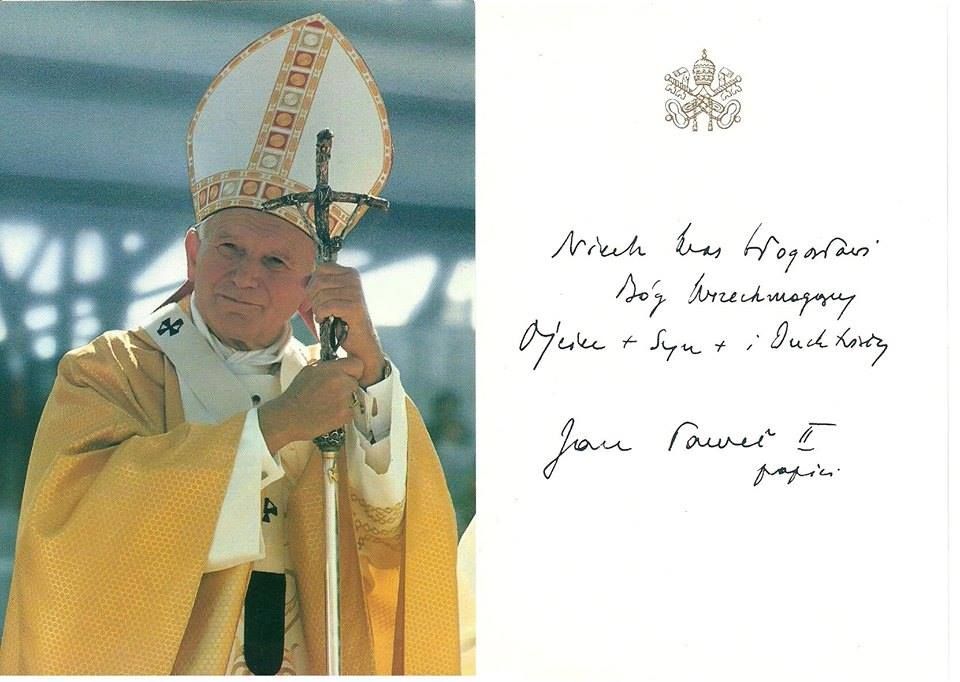 Niech Was błogosławi
Bóg Wszechmogący
Ojciec + Syn + i Duch Święty
Jan Paweł II
papież